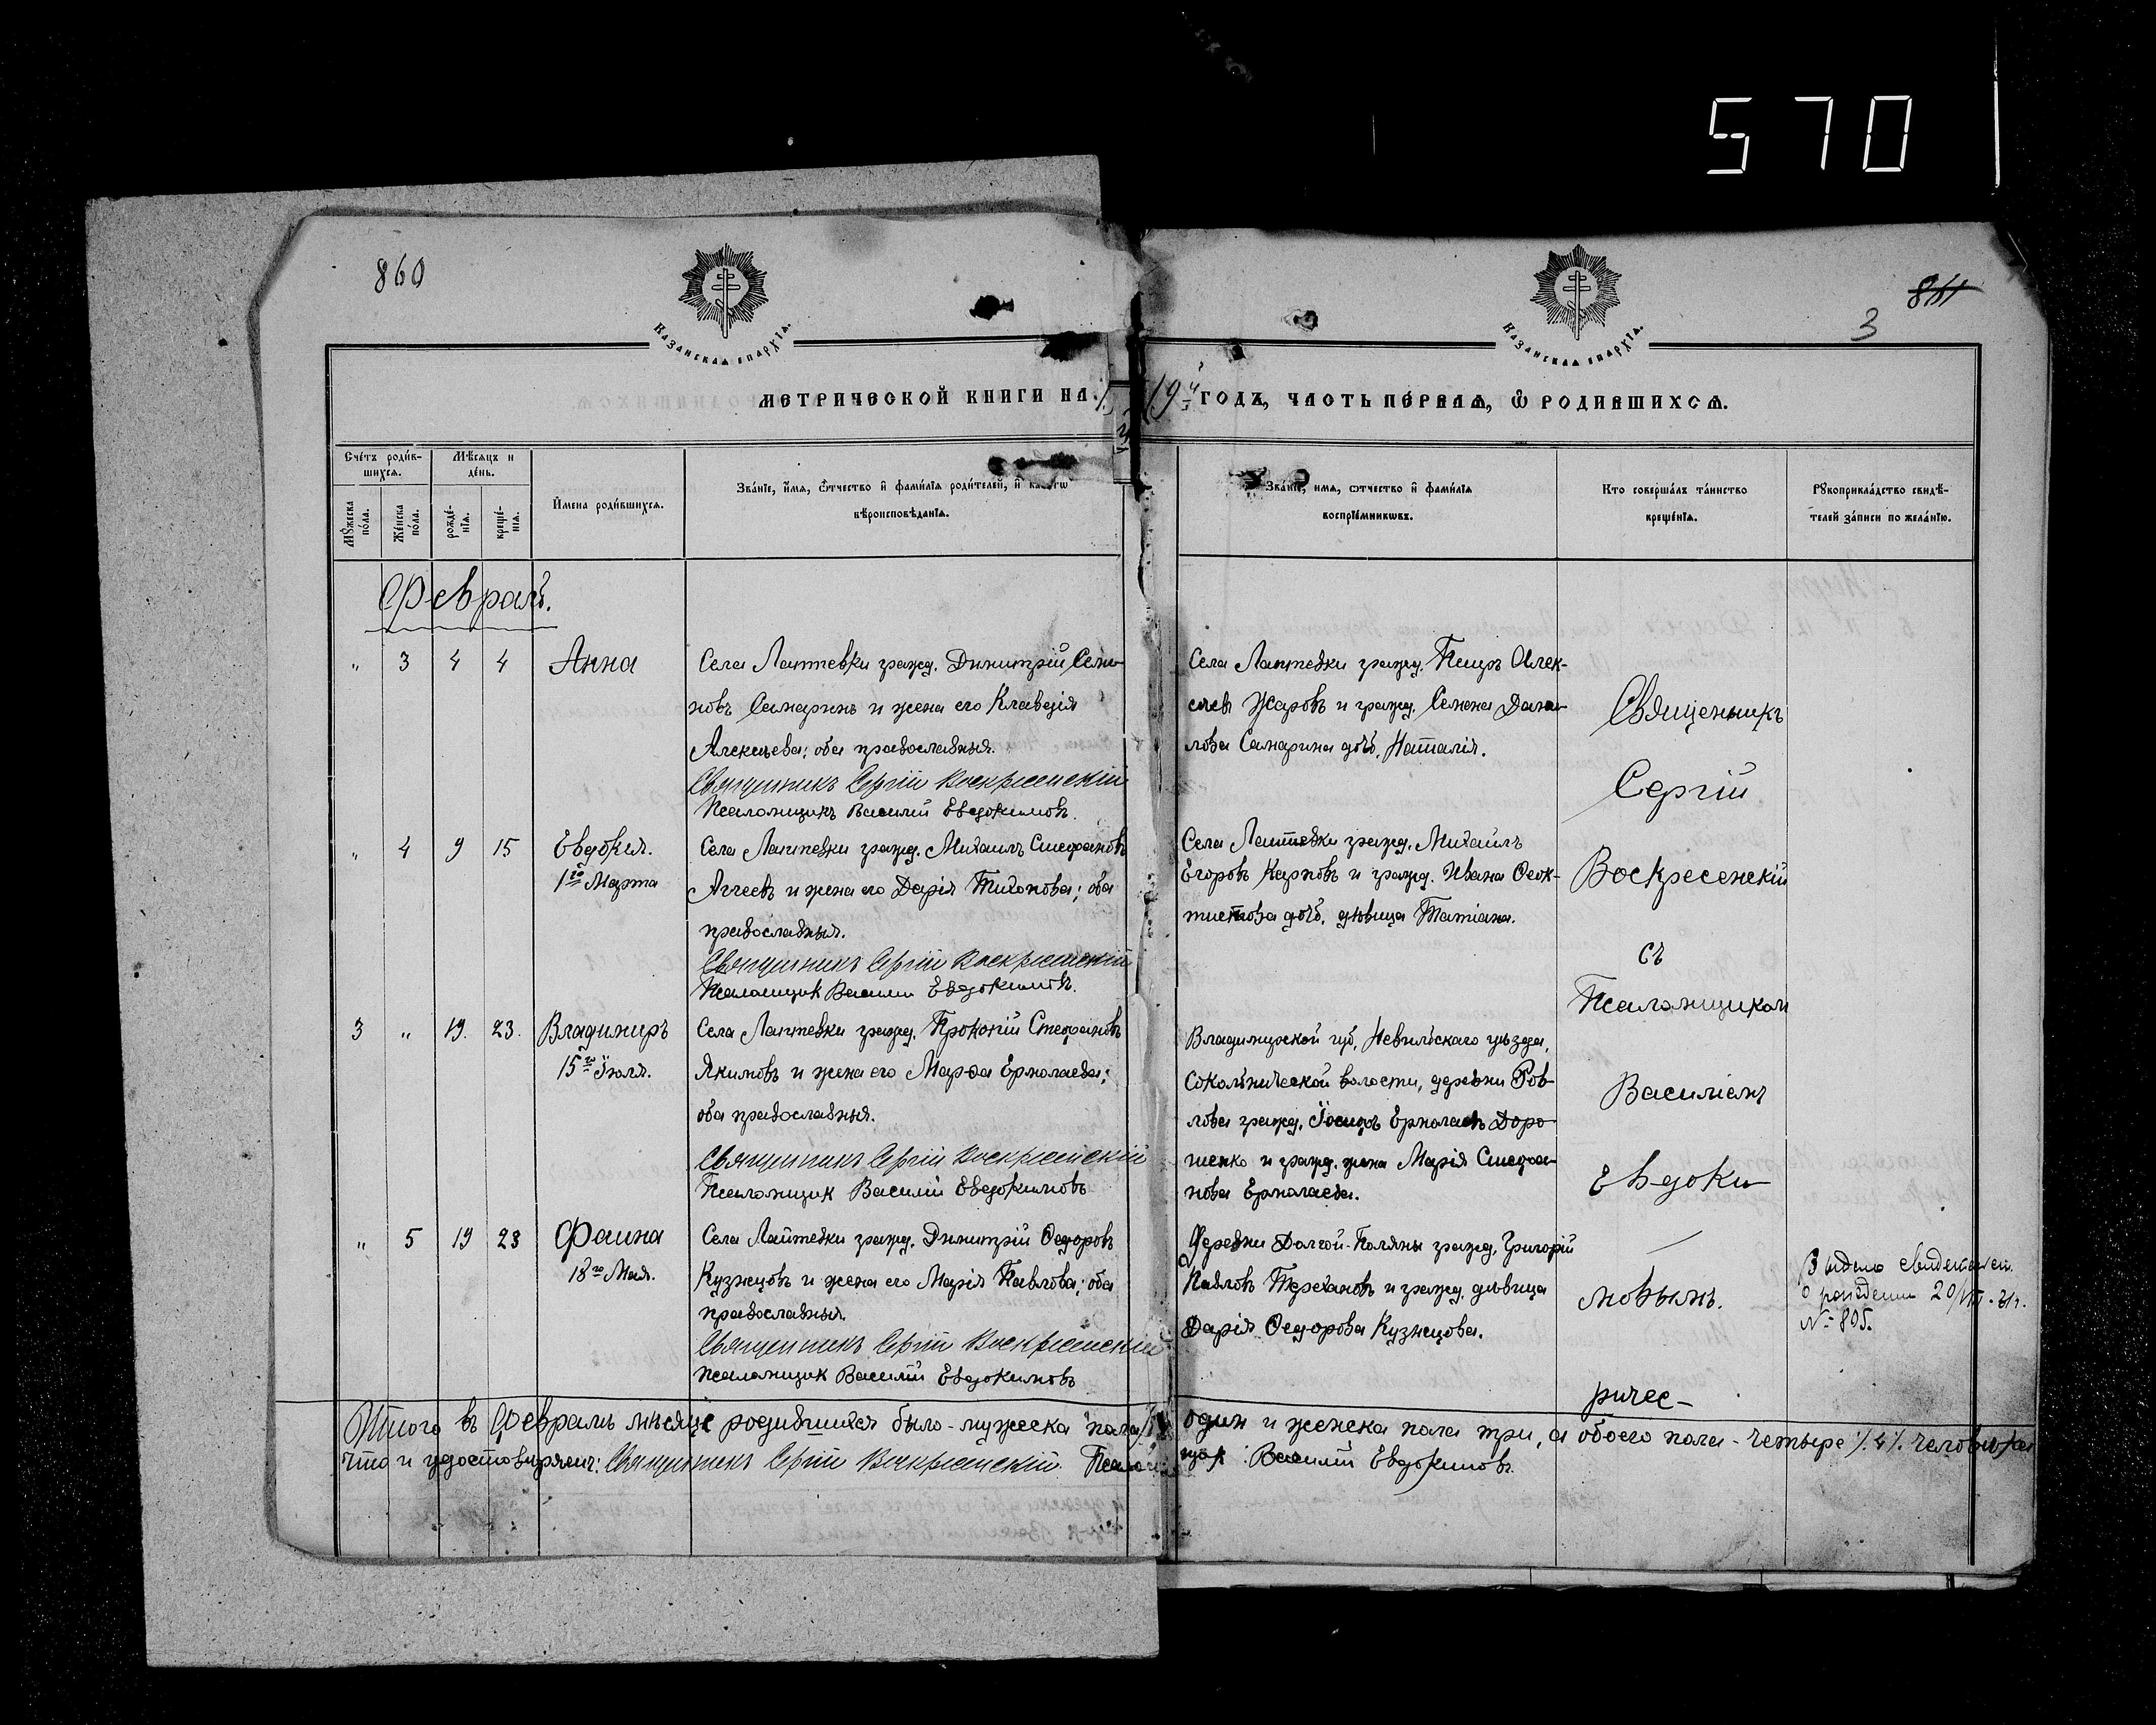 570
860
КАЗАНСКАЯ ЕПАРХІЯ.
КАЗАНСКАЯ ЕПАРХІЯ.
861
3
МЕТРИЧЕСКОЙ КНИГИ НА 19 ГОДЪ, ЧАСТЬ ПЕРВАЯ, Ѿ РОДИВШИХСЯ.
Сче́тъ роди́в-
шихся.
Мѣ́сяцъ и
де́нь.
Мꙋ́жеска
по́ла.
Же́нска
по́ла.
рожде́-
нїя.
креще́-
нїя.
И҆мена роди́вшихся.
Зва́нїе, и҆́мя, ѻ҆́тчество и҆ фами́лїя роди́телей, и҆
вѣроисповѣ́данїя.
Зва́нїе, имя, ѻтчество и҆ фами́лїя
воспрїе́мникѡвъ.
Кто соверша́лъ та́инство
креще́нїя.
Рꙋкоприкла́дство свидѣ́-
телей за́писи по жела́нїю.
Февраль.
" 3 4 4 Анна
Села Лаптевки гражд. Димитрій Семе-
новъ Самаринъ и жена его Клавдія
Алексѣева; оба православныя.
Священникъ Сергій Воскресенскій
Псаломщикъ Василій Евдокимовъ.
Села Лаптевки гражд. Петръ Алек-
сѣевъ Жаровъ и гражд. Семена Дани-
лова Самарина дочь, Наталія.
" 4 9 15 Евдокія.
1го Марта
Села Лаптевки гражд. Михаилъ Стефановъ
Агѣевъ и жена его Дарія Тихонова; оба
православныя.
Священникъ Сергій Воскресенскій
Псаломщик Василій Евдокимовъ.
Села Лаптевки гражд. Михаилъ
Егоровъ Карповъ и гражд. Ивана Ѳеок-
тистова дочь, дѣвица Татіана.
3 " 19. 23. Владимиръ
15го Іюля.
Села Лаптевки гражд. Прокопій Стефановъ
Якимовъ и жена его Марѳа Ермолаева;
оба православныя.
Священникъ Сергій Воскресенскій
Псаломщик Василій Евдокимовъ
Владимирской губ, уѣзда,
волости, деревни Ров-
лова гражд. Іосифъ Ермолаевъ Доро-
шенко и гражд. жена Марія Стефа-
нова Ермолаева.
" 5 19 23 Фаина
18го Мая.
Села Лаптевки гражд. Димитрій Ѳедоровъ
Кузнецовъ и жена его Марія Павлова; оба
православныя.
Священникъ Сергій Воскресенскій
псаломщик Василій Евдокимовъ
Деревни Долгой-Поляны гражд. Григорій
Павловъ Терехановъ и гражд. дѣвица
Дарія Ѳедорова Кузнецова.
Священникъ
Сергій
Воскресенскій
съ
Псаломщиком
Василіемъ
Евдоки-
мовымъ.
ричес-
Выдано свидетельст.
о рождении 20/VII-31г.
№ 805.
Итого въ Февралѣ мѣсяцѣ родившихся было - мужеска пола один и женска пола три, а обоего пола - четыре /.4/. человѣка
что и удостовѣряемъ: Священникъ Сергій Воскресенскій. Псаломщик Василій Евдокимовъ.